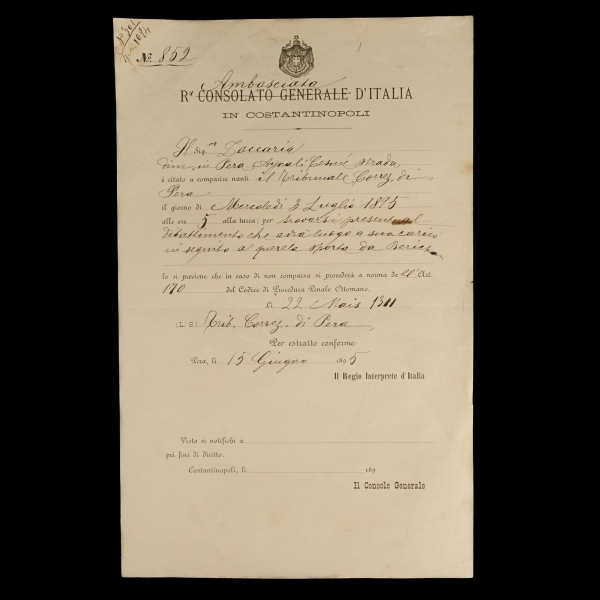 No. 852
Ambasciata
Ro CONSOLATO GENERALE D'ITALIA
IN COSTANTINOPOLI
Il Sig.r Zaccaria
dim. in Pera Aynali Cesmé strada
è citato a comparire nanti il Tribunale Correz. di
Pera
il giorno di Mercoledì 3 Luglio 1895
alle ore 5 alla turca; per trovarsi presente al
dibattimento che avrà luogo a suo carico
in seguito a querela sporta da
Lo si previene che in caso di non comparsa si procederà a norma dell'Art.
170 del Codice di Procedura Penale Ottomano.
Li 22 Mais 1311
(L. S.) Trib. Correz. di Pera
Per estratto conforme
Pera, li 15 Giugno 1895
Il Regio Interprete d'Italia
Visto si notifichi a
pei fini di diritto.
Costantinopoli, li 189
Il Console Generale